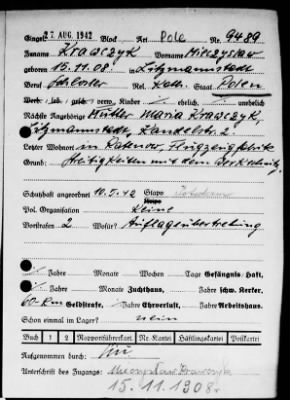 Eingel. 27. AUG. 1942 Block Art Pole Nr. 9489
Zuname Krawczyk Vorname Mieczyslaw
geboren 15.11.08. in Litzmannstadt
Beruf Schlosser Rel. Kath. Staat Polen
Verh. led. gesch. verw. Kinder ehelich unehelich
Nächste Angehörige Mutter Maria Krawczyk,
Litzmannstadt,
Letzter Wohnort in Ratenow, Flugzeugfabrik
Grund: Streitigkeiten mit dem
Schutzhaft angeordnet 10.5.42 Stapo
Pol. Organisation Keine
Vorstrafen 2 Wofür? Auflageübertretung
Jahre Monate Wochen Tage Gefängnis, Haft,
Jahre Monate Zuchthaus, Jahre schw. Kerker,
60 RM Geldstrafe, Jahre Ehrverlust, Jahre Arbeitshaus.
Schon einmal im Lager? nein
Buch 1 2 Rapportführerkart. Nr. Kartei Häftlingskartei Postkartei
Aufgenommen durch:
Unterschrift des Zugangs: Mieczysław Krawczyk
15.11.1908.